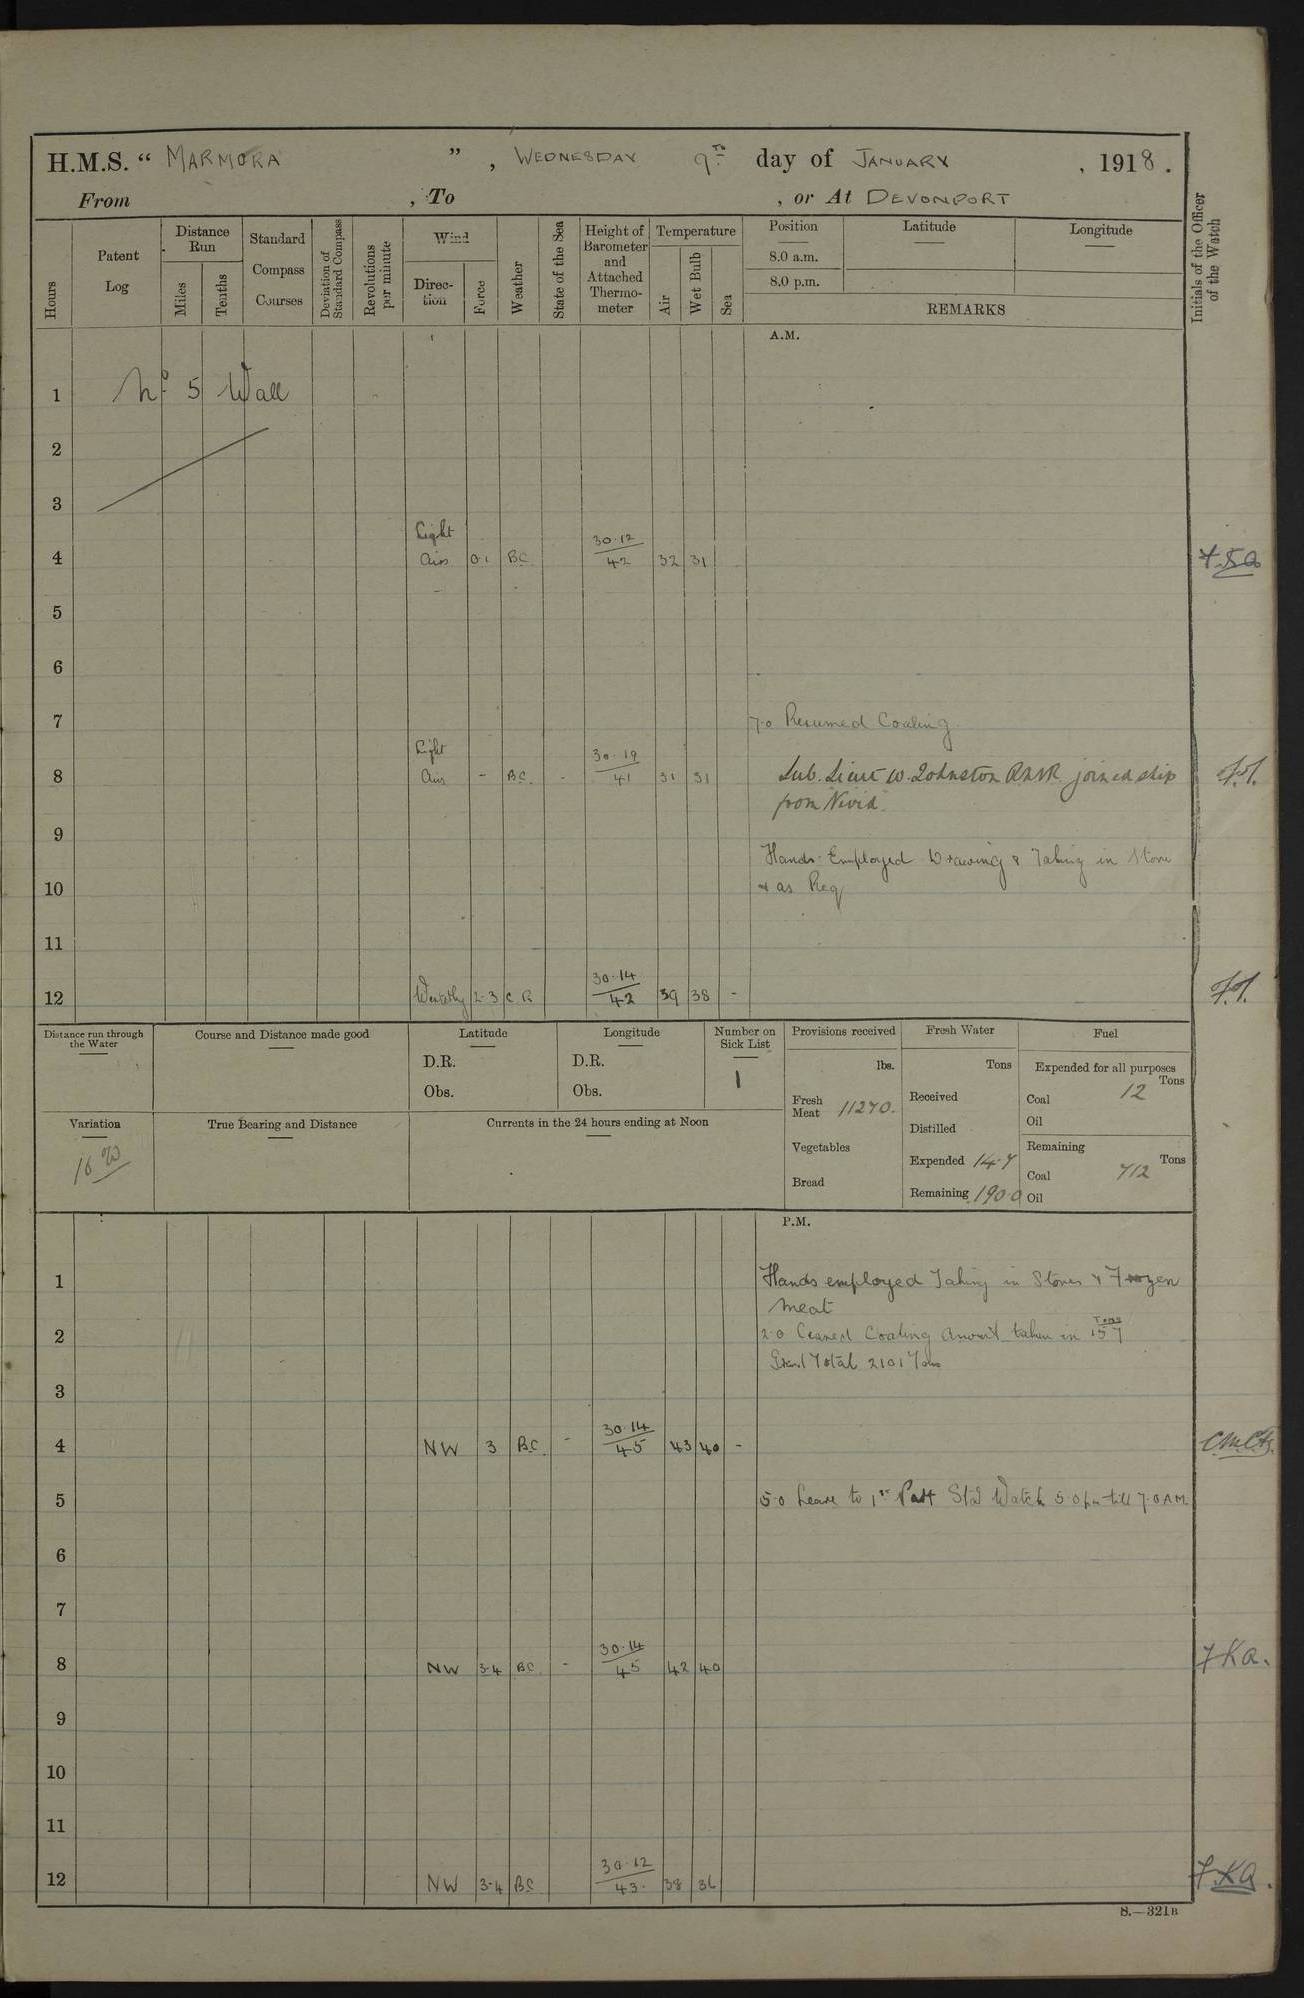 H.M.S. “ MARMORA ” , WEDNESDAY 9TH day of JANUARY , 1918 .
From , To , or At DEVONPORT
Hours
Patent Log
Distance Run
Miles
Tenths
Standard Compass Courses
Deviation of Standard Compass
Revolutions per minute
Wind
Direction
Force
Weather
State of the Sea
Height of Barometer and Attached Thermometer
Temperature
Air
Wet Bulb
Sea
Position
8.0 a.m.
8.0 p.m.
Latitude
Longitude
REMARKS
Initials of the Officer of the Watch
A.M.
1 No 5 Wall
2
3
Light
4 Airs 0.1 BC 30.12 42 32 31
5
6
7 7.0 Resumed Coaling
Light
8 Airs - BC - 30.19 41 31 31 Sub. Lieut W. Johnston RNR joined ship
from Vivid.
9
Hands Employed Drawing & Taking in Store
10 & as Req
11
12 Westerly 2-3 C.R 30.14 42 39 38 -
Distance run through the Water
Course and Distance made good
Latitude
D.R.
Obs.
Longitude
D.R.
Obs.
Number on Sick List
1
Provisions received
lbs.
Fresh Meat 11270.
Vegetables
Bread
Fresh Water
Tons
Received
Distilled
Expended 147
Remaining 1900
Fuel
Expended for all purposes
Tons
Coal 12
Oil
Remaining
Tons
Coal 712
Oil
Variation
16 W
True Bearing and Distance
Currents in the 24 hours ending at Noon
P.M.
1 Hands employed Taking in Stores & Frozen
meat
2 2.0 Ceased Coaling Amount taken in 157 Tons
Total 2101 Tons
3
4 NW 3 BC. - 30.14 45 43 40 -
5 5.0 Leave to 1st Part Stbd Watch 5.0 pm till 7.0 AM
6
7
8 NW 3-4 BC - 30.14 45 42 40 FKa.
9
10
11
12 NW 3-4 BC 30.12 43. 38 36 FKa.
8.—321B